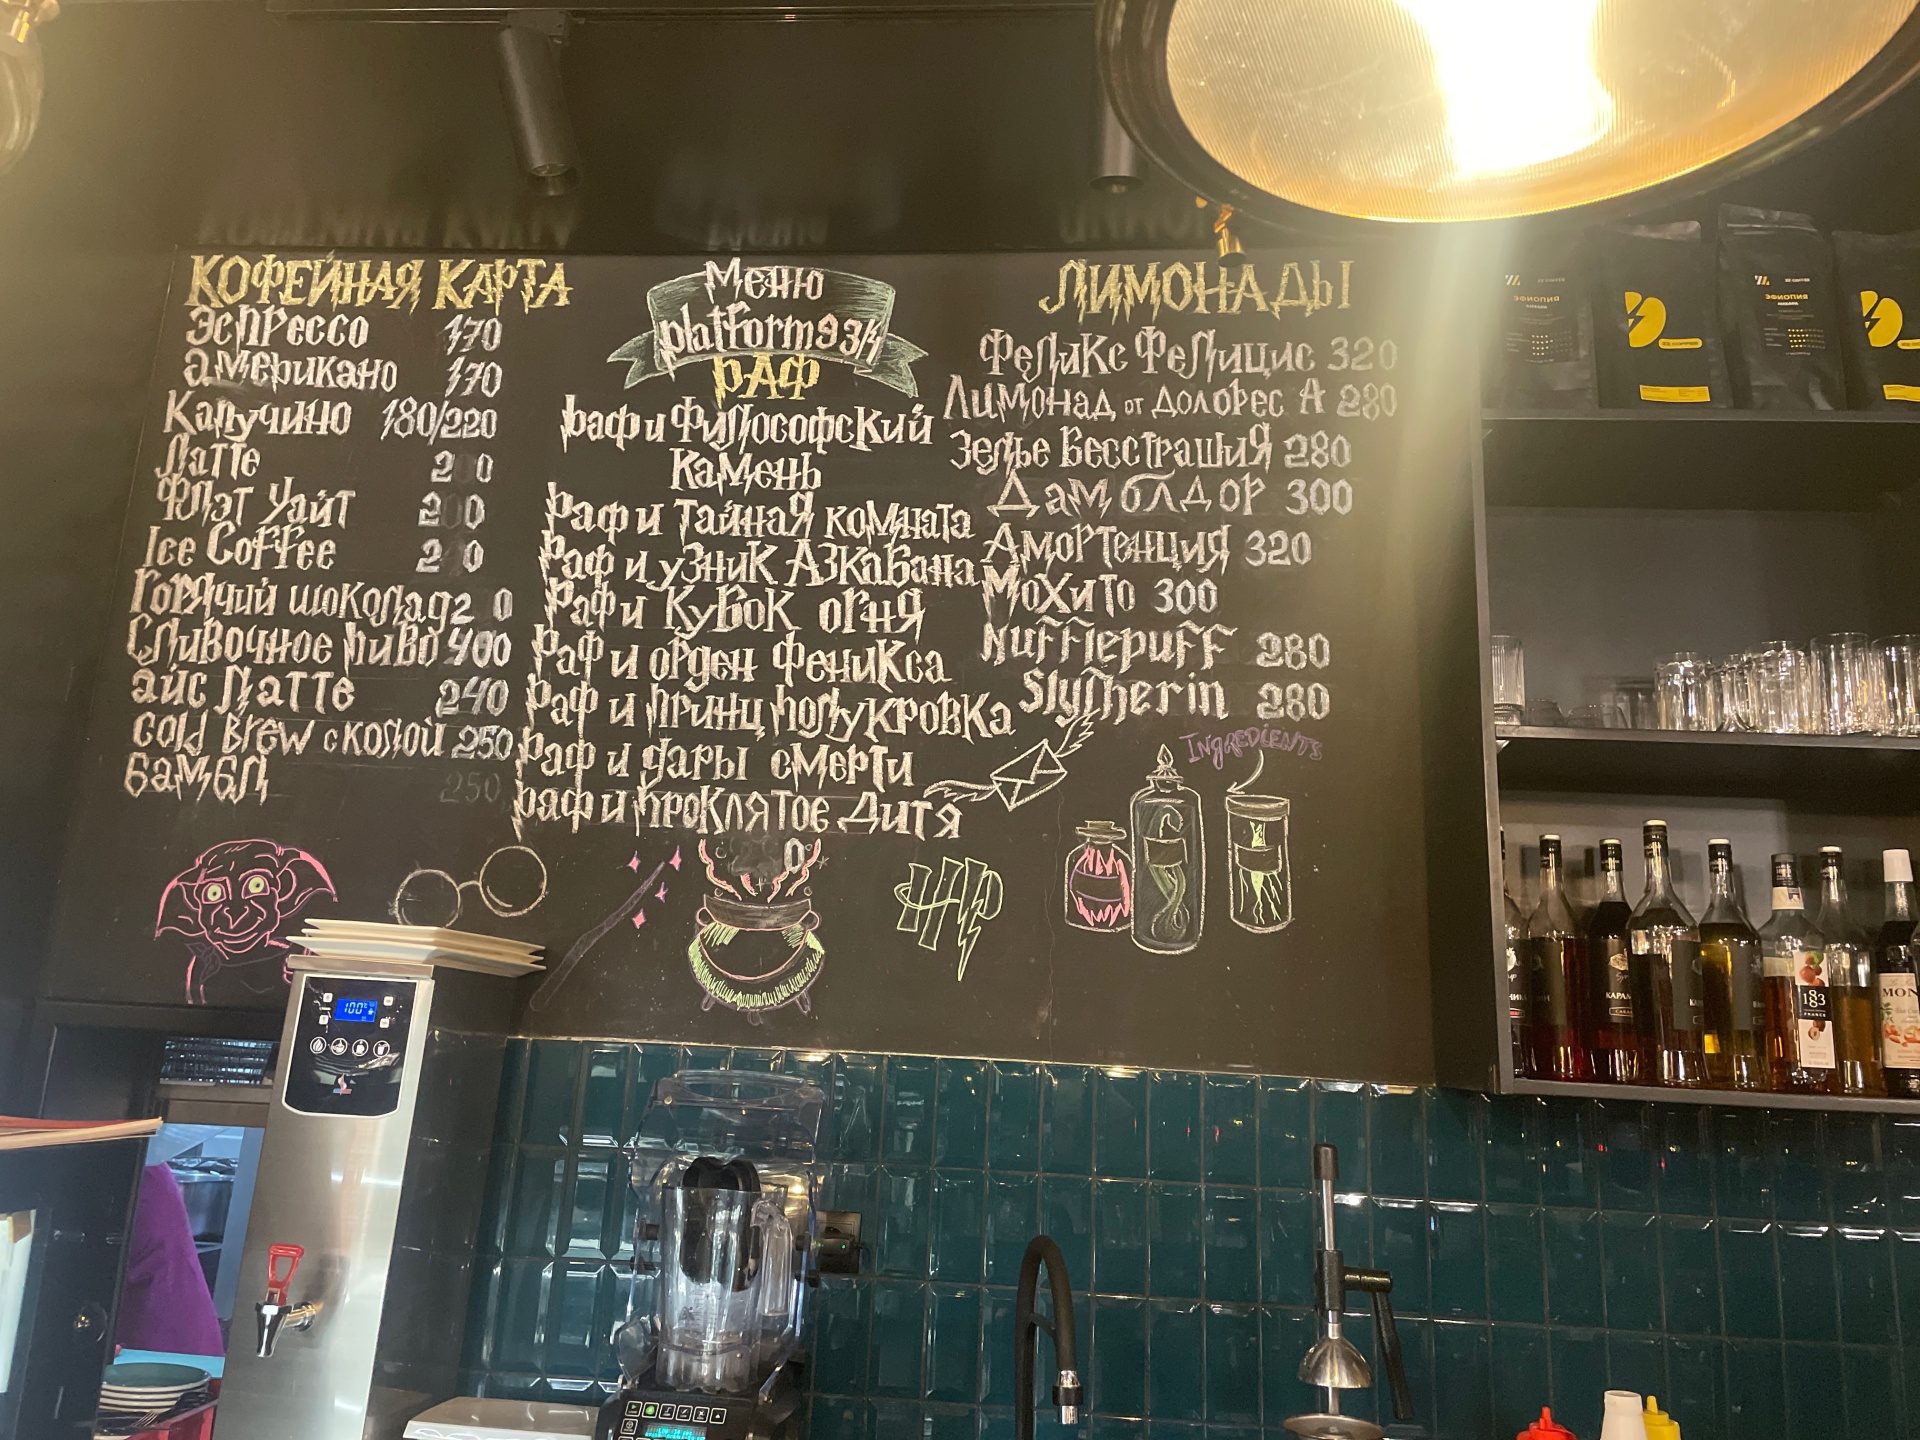 КОФЕЙНАЯ КАРТА
Эспрессо 170
Американо 170
Капучино 180/220
Латте 2 0
Флэт Уайт 2 0
Ice Coffee 2 0
Горячий шоколад 2 0
Сливочное пиво 400
айс Латте 240
cold Brew с колой 250
Бамбл 250
Меню
platform 9 3/4
РАФ
Раф и Философский
Камень
Раф и Тайная комната
Раф и узник Азкабана
Раф и Кубок огня
Раф и орден Феникса
Раф и принц полукровка
Раф и дары смерти
Раф и проклятое дитя
0
HP
ЛИМОНАДЫ
Феликс Фелицис 320
Лимонад от Долорес А 280
Зелье Бесстрашия 280
Дамблдор 300
Амортенция 320
Мохито 300
Hufflepuff 280
Slytherin 280
Ingredients
100
КАРАМ
1883
FRANCE
MON